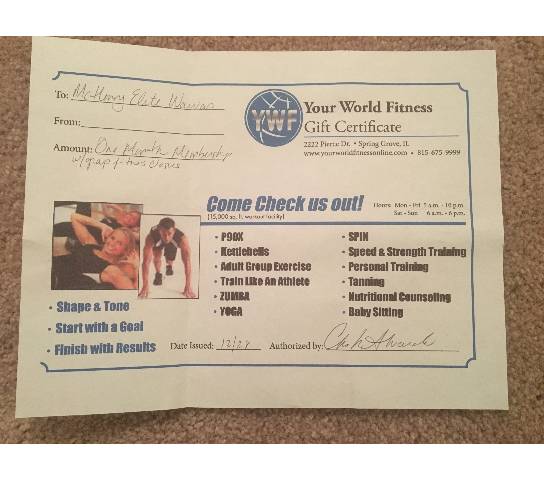 To: McHenry Elite Warriors
From:
Amount: One Month Membership
w/group fitness classes
YWF
Your World Fitness
Gift Certificate
2222 Pierce Dr. • Spring Grove, IL
www.yourworldfitnessonline.com • 815-675-9999
Come Check us out!
(15,000 sq. ft. workout facility)
Hours: Mon - Fri 5 a.m. - 10 p.m.
Sat - Sun 6 a.m. - 6 p.m.
• P90X
• Kettlebells
• Adult Group Exercise
• Train Like An Athlete
• ZUMBA
• YOGA
• SPIN
• Speed & Strength Training
• Personal Training
• Tanning
• Nutritional Counseling
• Baby Sitting
• Shape & Tone
• Start with a Goal
• Finish with Results
Date Issued: 12/29 Authorized by: